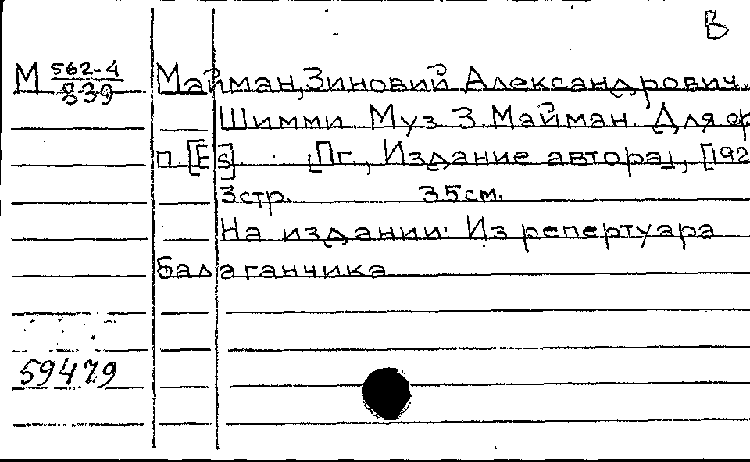 В
М 562-4/839 Майман, Зиновий Александрович.
Шимми. Муз. З. Майман. Для фп.
п. [Es]. [Пг., Издание автора], [192
3 стр. 35 см.
На издании: Из репертуара
балаганчика
59479